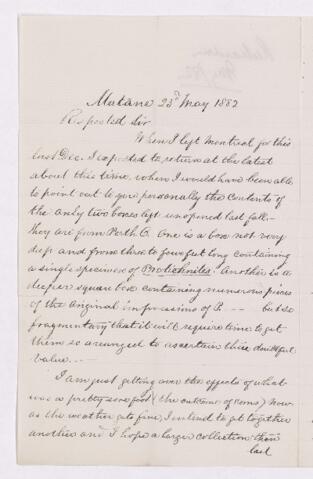 Matane 23d May 1882
Respected Sir
When I left Montreal for this
last Dec. I expected to return at the latest
about this time, when I would have been able
to point out to you personally the contents of
the only two boxes left unopened last fall—
they are from Perth O. One is a box not very
deep and from three to four feet long containing
a single specimen of Protichnites. Another is a
deeper square box containing numerous pieces
of the original impressions of P. — but so
fragmentary that it will require time to get
them so arranged to ascertain their doubtful
value. —
I am just getting over the effects of what
was a pretty sore foot (the outcome of corns) Now
as the weather gets fine, I intend to get together
another and I hope a larger collection than
last